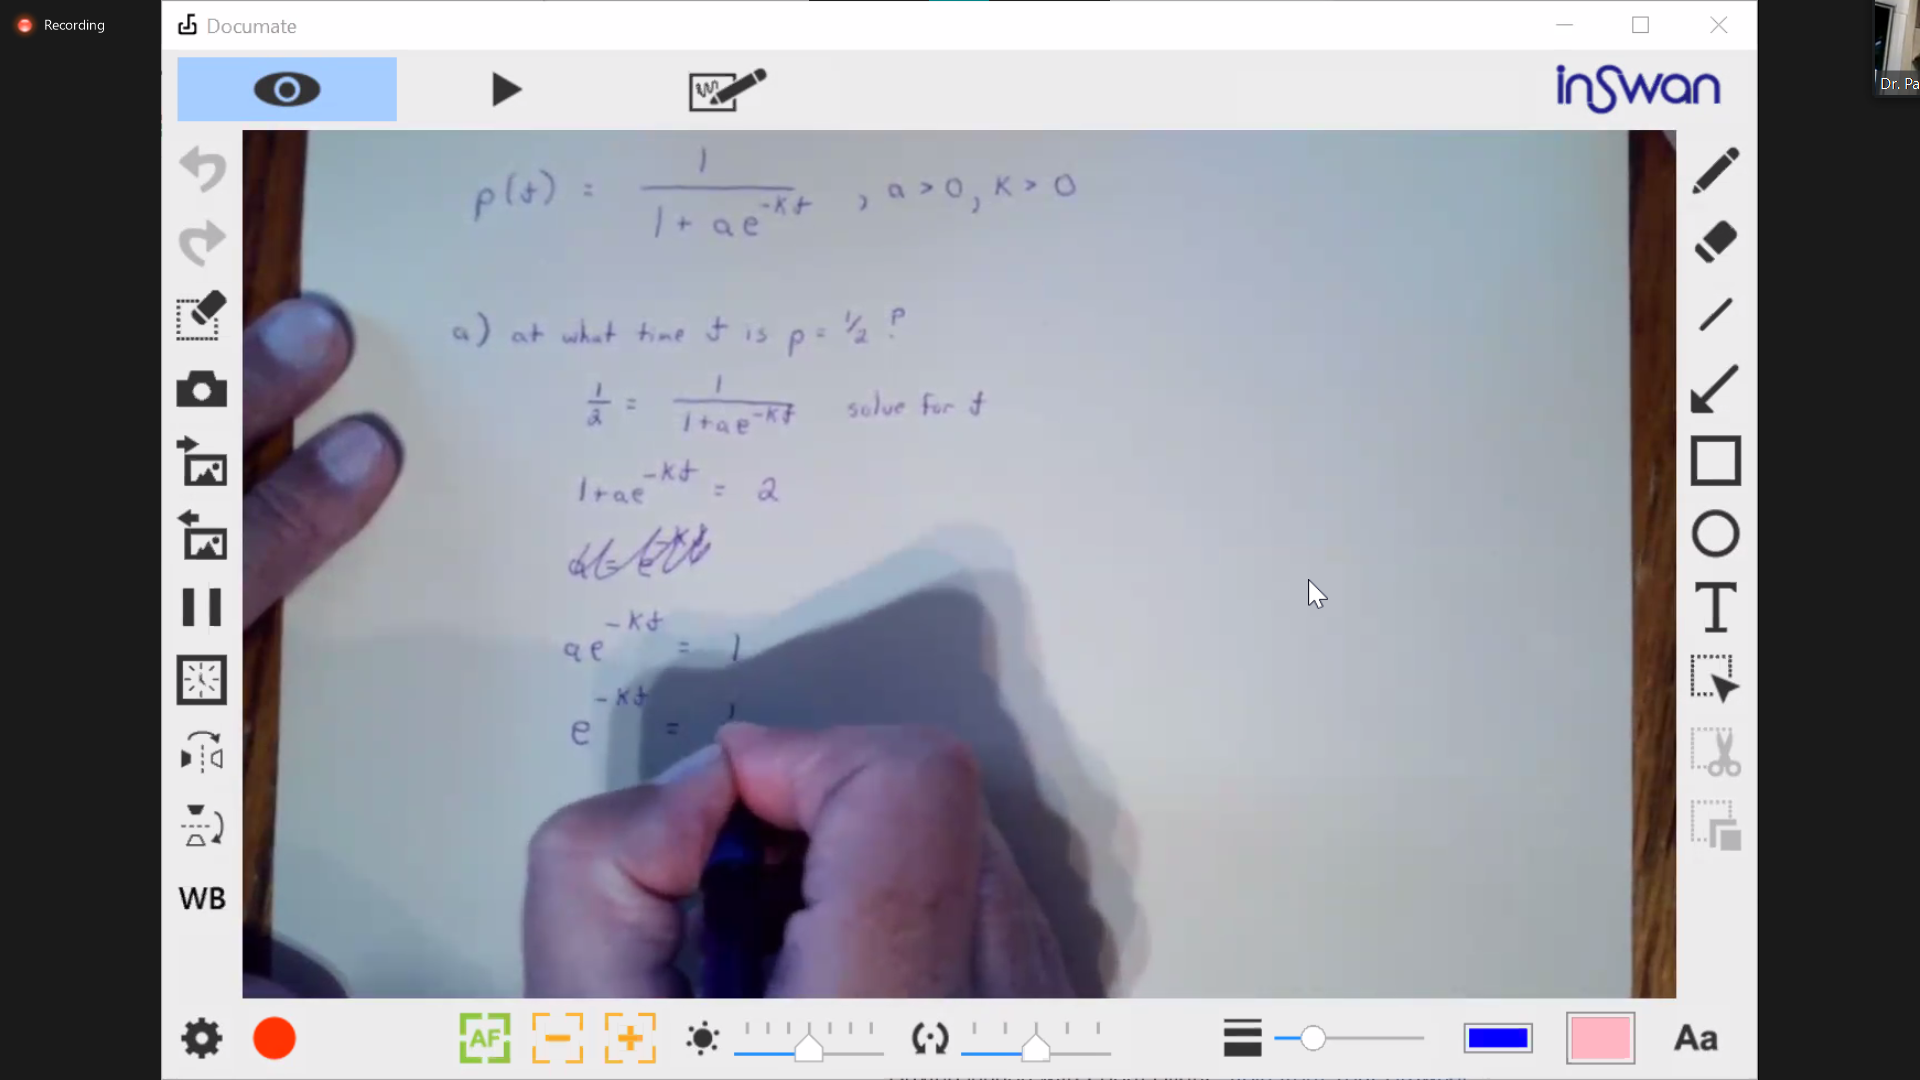 Recording
Documate
inSwan
Dr. Pa
p(t) = 1 / (1 + ae^-kt) , a > 0, k > 0
a) at what time t is p = 1/2 ?
1/2 = 1 / (1+ae^-kt) solve for t
1+ae^-kt = 2
ae^-kt = 1
e^-kt = 1
WB
AF
Aa